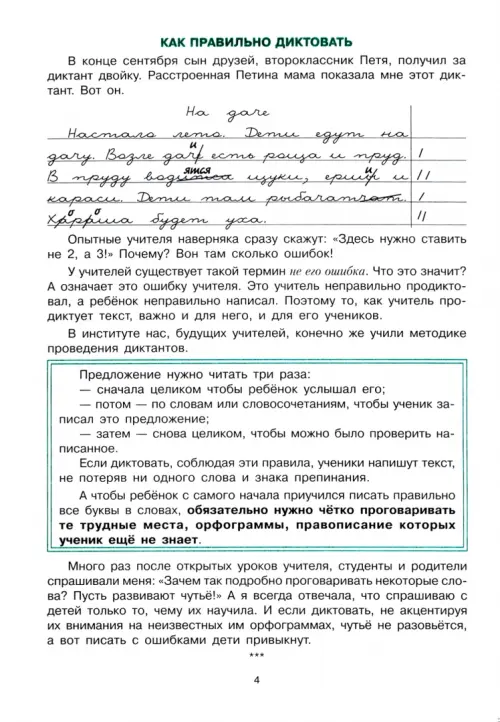 КАК ПРАВИЛЬНО ДИКТОВАТЬ
В конце сентября сын друзей, второклассник Петя, получил за
диктант двойку. Расстроенная Петина мама показала мне этот дик-
тант. Вот он.
На даче
Настало лето. Дети едут на
и
дачу. Возле дачи есть роща и пруд. I
ятся и
В пруду водятса щуки, ерши и II
караси. Дети там рыбачат.
о о
Хараша будет уха. II
Опытные учителя наверняка сразу скажут: «Здесь нужно ставить
не 2, а 3!» Почему? Вон там сколько ошибок!
У учителей существует такой термин не его ошибка. Что это значит?
А означает это ошибку учителя. Это учитель неправильно продикто-
вал, а ребёнок неправильно написал. Поэтому то, как учитель про-
диктует текст, важно и для него, и для его учеников.
В институте нас, будущих учителей, конечно же учили методике
проведения диктантов.
Предложение нужно читать три раза:
— сначала целиком чтобы ребёнок услышал его;
— потом — по словам или словосочетаниям, чтобы ученик за-
писал это предложение;
— затем — снова целиком, чтобы можно было проверить на-
писанное.
Если диктовать, соблюдая эти правила, ученики напишут текст,
не потеряв ни одного слова и знака препинания.
А чтобы ребёнок с самого начала приучился писать правильно
все буквы в словах, обязательно нужно чётко проговаривать
те трудные места, орфограммы, правописание которых
ученик ещё не знает.
Много раз после открытых уроков учителя, студенты и родители
спрашивали меня: «Зачем так подробно проговаривать некоторые сло-
ва? Пусть развивают чутьё!» А я всегда отвечала, что спрашиваю с
детей только то, чему их научила. И если диктовать, не акцентируя
их внимания на неизвестных им орфограммах, чутьё не разовьётся,
а вот писать с ошибками дети привыкнут.
***
4